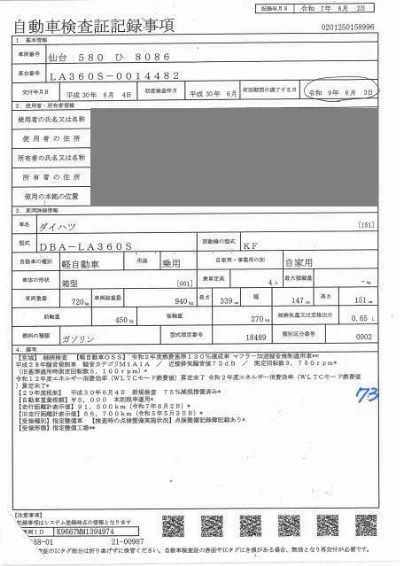 記録年月日 令和 7年 6月 2日
自動車検査証記録事項
0201250158996
1. 基本情報
車両番号 仙台 580 ひ 8086
車台番号 LA360S-0014482
交付年月日 平成30年 6月 4日 初度検査年月 平成30年 6月 有効期間の満了する日 令和 9年 6月 3日
2. 使用者・所有者情報
使用者の氏名又は名称
使用者の住所
所有者の氏名又は名称
所有者の住所
使用の本拠の位置
3. 車両詳細情報
車名 ダイハツ [151]
型式 DBA-LA360S 原動機の型式 KF
自動車の種別 軽自動車 用途 乗用 自家用・事業用の別 自家用
車体の形状 箱型 [001] 乗車定員 4人 最大積載量 -kg
車両重量 720kg 車両総重量 940kg 長さ 339cm 幅 147cm 高さ 151cm
前軸重 450kg 後軸重 270kg 総排気量又は定格出力 0.65 L
燃料の種類 ガソリン 型式指定番号 18489 類別区分番号 0002
4. 備考
【宮城】 継続検査 【軽自動車OSS】 令和2年度燃費基準130%達成車 マフラー加速騒音規制適用車**
平成28年騒音規制車 騒音カテゴリM1A1A / 近接排気騒音値73dB / 測定回転数3,750rpm
(旧基準適用時測定回転数3,100rpm)*
令和12年度エネルギー消費効率(WLTCモード燃費値)算定未了 令和2年度エネルギー消費効率(WLTCモード燃費値)算定未了*
【29年度税制】 平成30年6月4日 新規検査 75%減税措置済み*
【自動車重量税額】 ¥5,000 本則税率適用*
【走行距離計表示値】 91,500km (令和7年6月2日)*
【旧走行距離計表示値】 66,700km (令和5年5月30日)*
【受検種別】指定整備車 【検査時の点検整備実施状況】点検整備記録簿記載あり*
【受検形態】指定整備工場**
73
【注意事項】
記録事項はシステム登録時点の情報となります
ID K9667MM1394974
58-01 21-00987
証のICタグ部分は折り曲げずに保管ください。自動車検査証の券面やICタグにき損がある場合、無効となり再交付が必要です。